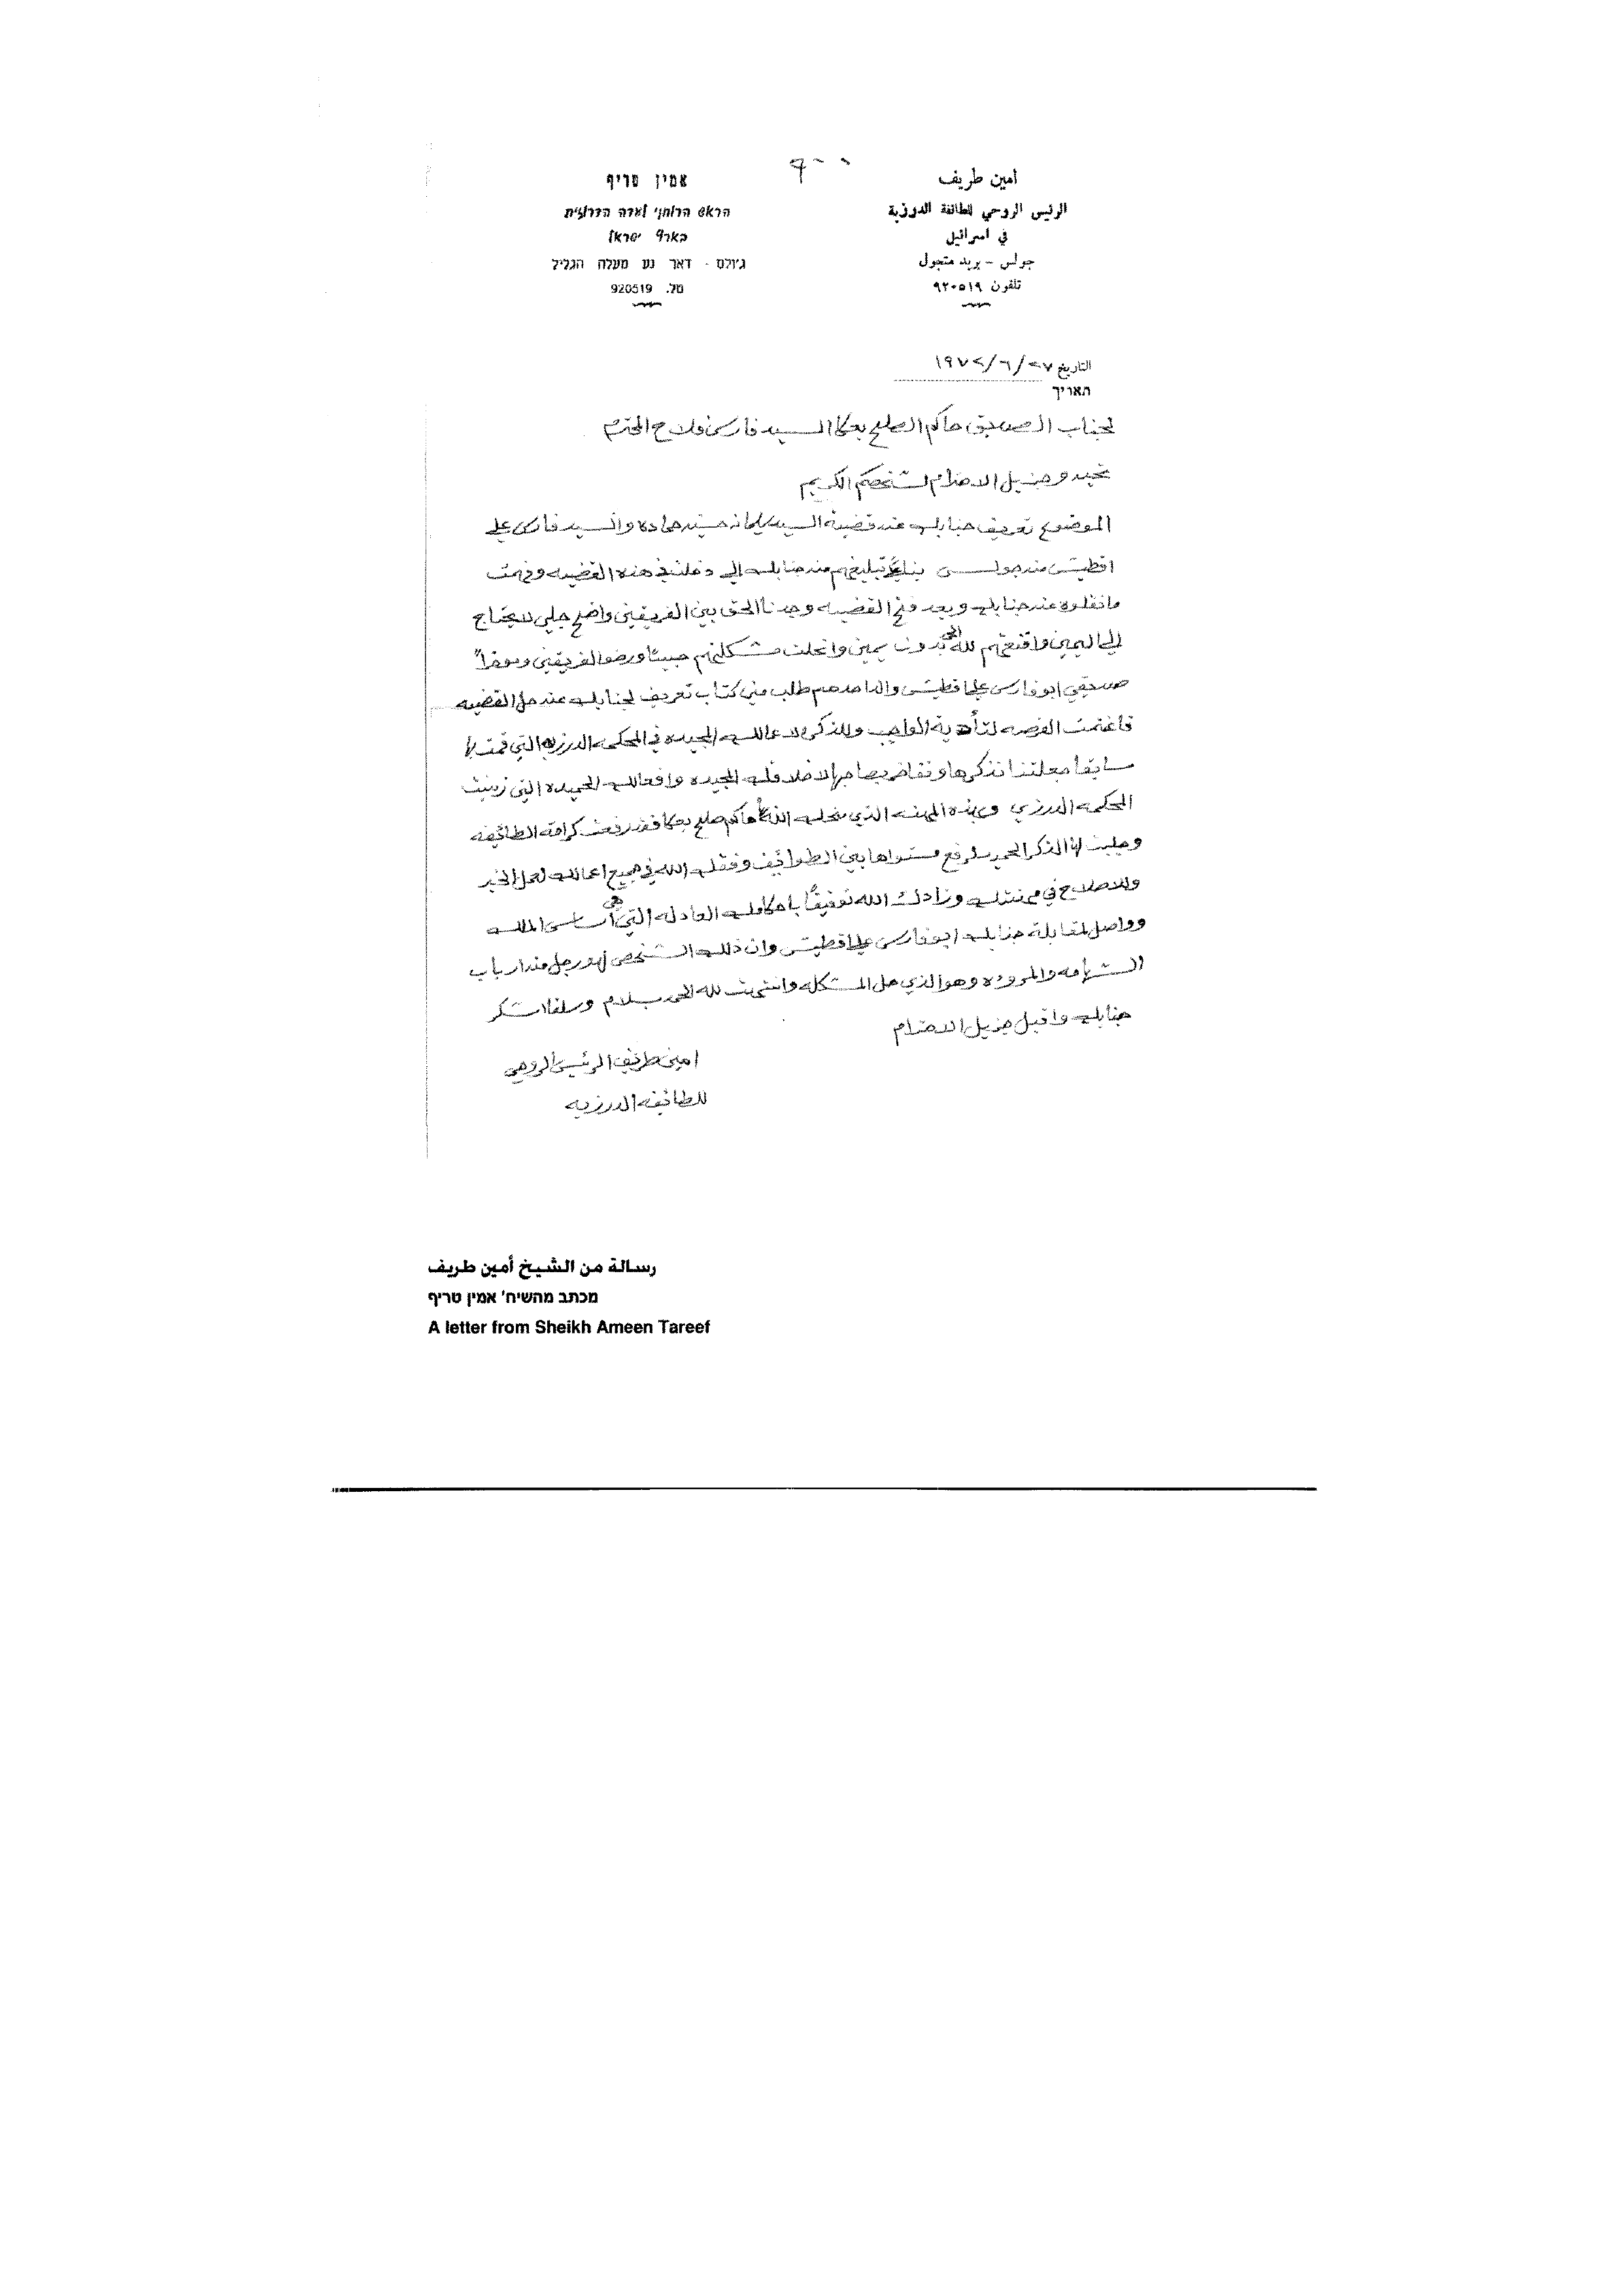 امين طريف
الرئيس الروحي للطائفة الدرزية
في اسرائيل
جولس - بريد متجول
تلفون ٩٢٠٥١٩
אמין טריף
הראש הרוחני לעדה הדרוזית
בארץ ישראל
ג'ולס - דאר נע מעלה הגליל
טל. 920519
التاريخ ٢٧/٦/١٩٧٢
תאריך
لجناب الصديق حاكم الصلح بعكا السيد فارس فلاح المحترم
تحيه وجزيل الاحترام لشخصكم الكريم
الموضوع تعريف جنابك عن قضية السيد سليمان حسين حماده والسيد فارس علي
اقطيش من جولس بناء تبليغهم من جنابك الي دخلنا في هذه القضيه وفهمت
ما نقلوه عن جنابك وبعد فتح القضيه وجدنا الحق بين الفريقين واضح جلي لا يحتاج
الى اليمين واقنعتهم لله الحمد بدون يمين وانحلت مشكلتهم حبيًا ورضوا الفريقين
صديقي ابو فارس علي اقطيش والداعدهم طلب مني كتاب تعريف لجنابك عن حل القضيه
فاغتنمت الفرصه لتأدية الواجب وللذكرى لاعمالك المجيده في المحكمه الدرزيه التي قمت بها
سابقاً جعلتنا نذكرها ونتفاخر بصاحبها لاخلاقك المجيده وافعالك الحميده التي زينت
المحكمه الدرزي وبهذه المهنه الذي منحك الله حاكم صلح بعكا فقد رفعت كرامة الطائفه
وجلبت لها الذكر الحميد لرفع مستواها بين الطوائف وفقك الله في جميع اعمالك لعمل الخير
وللاصلاح في مهنتك وزادك الله توفيقًا باحكامك العادله التي هي أساس الملك
وواصل لمقابلة جنابك ابو فارس علي اقطيش وان ذلك الشخص لهو رجل من ارباب
الشهامه والمروءه وهو الذي حل المشكله وانتهيت لله الحمد بسلام وسلفا اشكر
جنابك واقبل جزيل الاحترام
امين طريف الرئيس الروحي
للطائفه الدرزيه
رسالة من الشيخ أمين طريف
מכתב מהשיח' אמין טריף
A letter from Sheikh Ameen Tareef